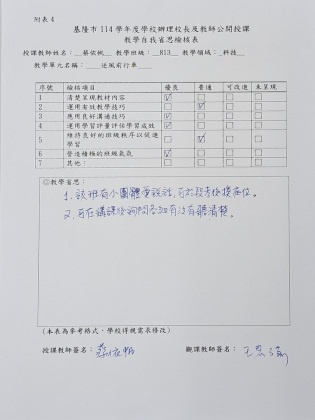 附表 4
基隆市 114 學年度學校辦理校長及教師公開授課
教學自我省思檢核表
授課教師姓名：蔡依帆 教學班級：813 教學領域：科技
教學單元名稱：逆風前行車
序號 檢核項目 優良 普通 可改進 未呈現
1 清楚呈現教材內容 ☑ □ □ □
2 運用有效教學技巧 □ ☑ □ □
3 應用良好溝通技巧 ☑ □ □ □
4 運用學習評量評估學習成效 ☑ □ □ □
5 維持良好的班級秩序以促進學習 □ ☑ □ □
6 營造積極的班級氣氛 ☑ □ □ □
7 其他： □ □ □ □
◎教學省思：
1. 該班有小團體愛說話，可於段考後換座位。
2. 可在講課後詢問各組有沒有聽清楚。
(本表為參考格式，學校得視需求修改)
授課教師簽名：蔡依帆 觀課教師簽名：